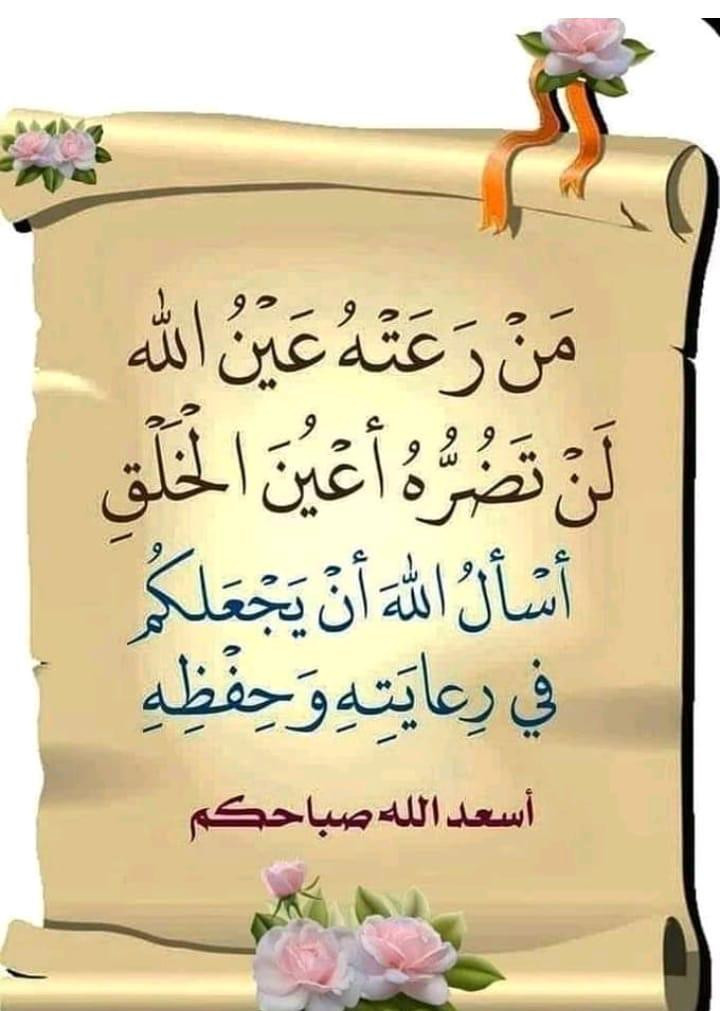 مَنْ رَعَتْهُ عَيْنُ الله
لَنْ تَضُرُّهُ أعْيُنَ الْخَلْقِ
أسْألُ اللهَ أنْ يَجْعَلكُم
في رِعايَتِهِ وَحِفْظِهِ
أسعد الله صباحكم